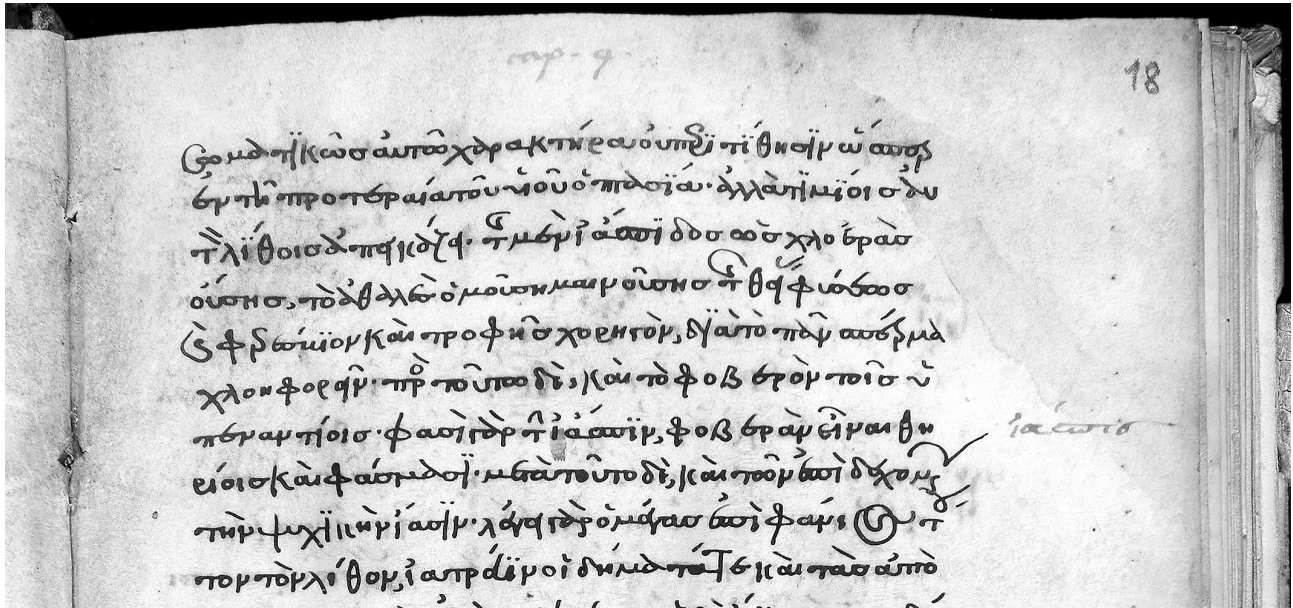 cap. 4.
18
σωματικῶς αὐτοῦ χαρακτῆρα οὐ περιτίθησιν ὧ ὥσπερ
ἐν τῇ προτεραία τοῦ υἱοῦ ὀπτασία· ἀλλὰ τιμίοις αὐ
τὸν λίθοις ἀπεικάζει· τῆς μὲν ἰάσπιδος ὡς χλοερᾶς
οὔσης, τὸ ἀειθαλὲς ὁμοῦ σημαινούσης τῆς θείας φύσεως
καὶ φερέσβιον καὶ τροφῆς χορηγὸν, διὰ τὸ πᾶν σπέρμα
χλοηφορεῖν· πρὸς τούτῳ δὲ, καὶ τὸ φοβερὸν τοῖς ὑ
πεναντίοις· φασὶ γὰρ τὴν ἴασπιν, φοβερὰν εἶναι θη
ρίοις καὶ φάσμασι· μετὰ τοῦτο δὲ, καὶ τῶν ἐπιδεχομένων
τὴν ψυχικὴν ἴασιν· λέγει γὰρ ὁ μέγας ἐπιφάνιος τοῦ
τον τὸν λίθον, ἰατρεύειν οἰδήματά τε καὶ τὰς ἀπὸ
ἴασπις